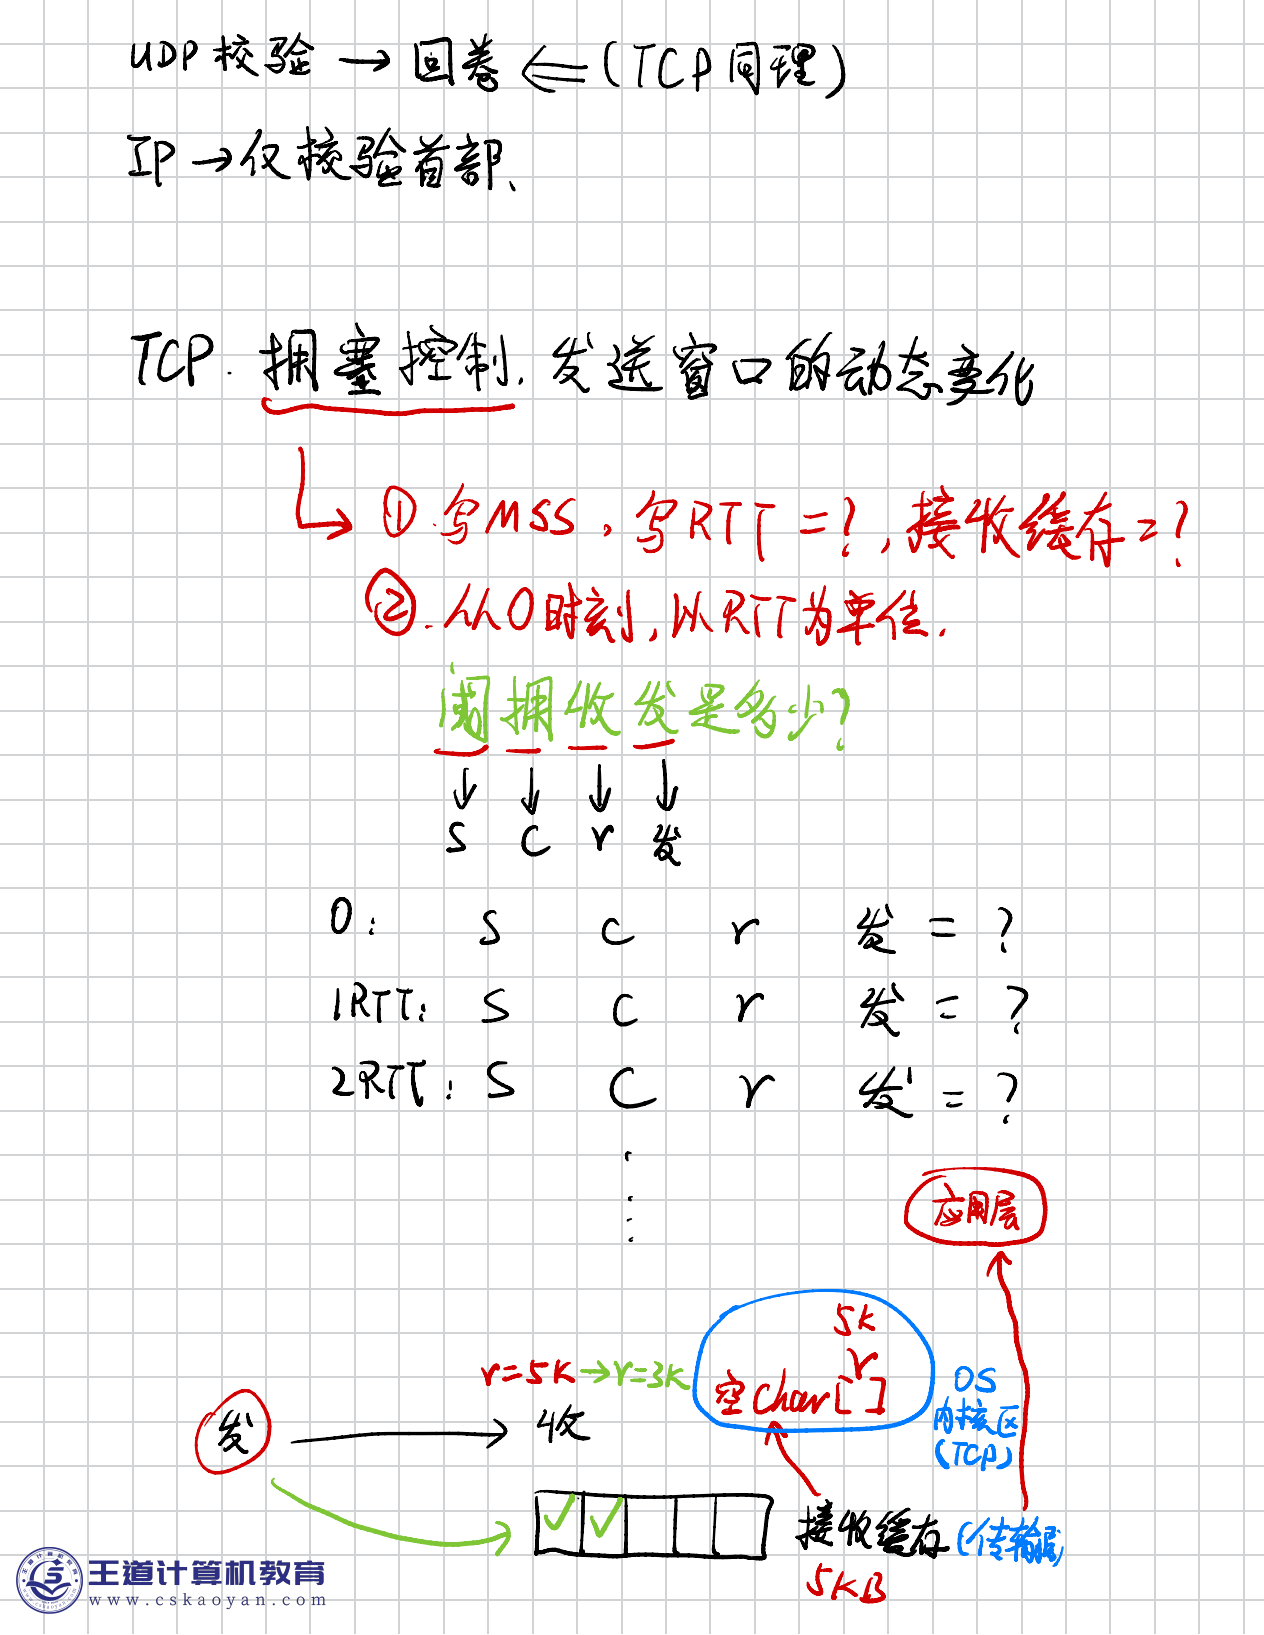 UDP校验 → 回卷 ⇐ (TCP同理)
IP → 仅校验首部、
TCP. 拥塞控制. 发送窗口的动态变化
① 写MSS, 写RTT = ?, 接收缓存 = ?
②. 从0时刻, 以RTT为单位.
阈拥收发是多少?
↓ ↓ ↓ ↓
S C r 发
0: S C r 发 = ?
1RTT: S C r 发 = ?
2RTT: S C r 发 = ?
应用层
5K
r=5K → r=3K
r
空char[ ]
OS
内核区
(TCP)
发 → 收
接收缓存 (传输层)
5KB
王道计算机教育
www.cskaoyan.com